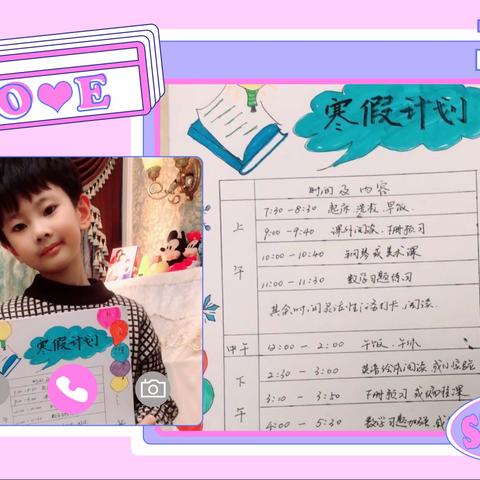 LOVE
寒假计划
时间及内容
上午
7:30-8:30 起床 洗漱 早饭
9:00-9:40 课外阅读、下册预习
10:00-10:40 钢琴或美术课
11:00-11:30 数学习题练习
其余时间灵活性 语打卡、阅读.
中午
12:00-2:00 午饭、午休
下午
2:30-3:00 英语绘本阅读 或
3:10-3:50 下册预习 或 编程课
4:00-5:30 数学习题加强
寒假计划
S